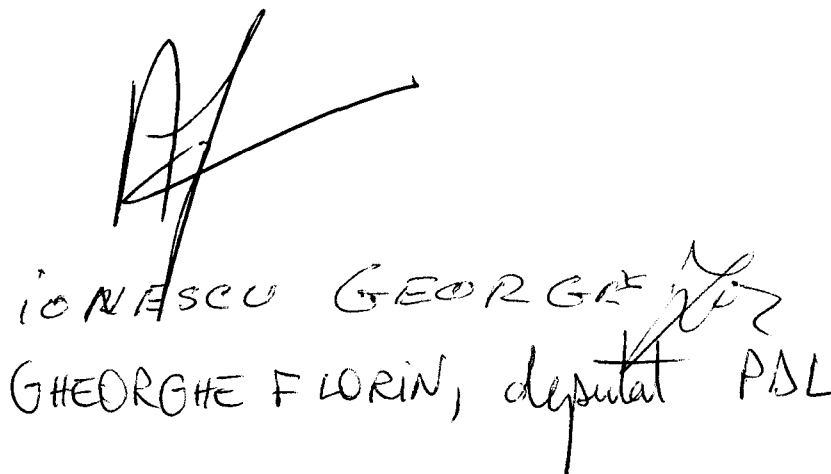 IONESCU GEORGE
GHEORGHE FLORIN, deputat PDL